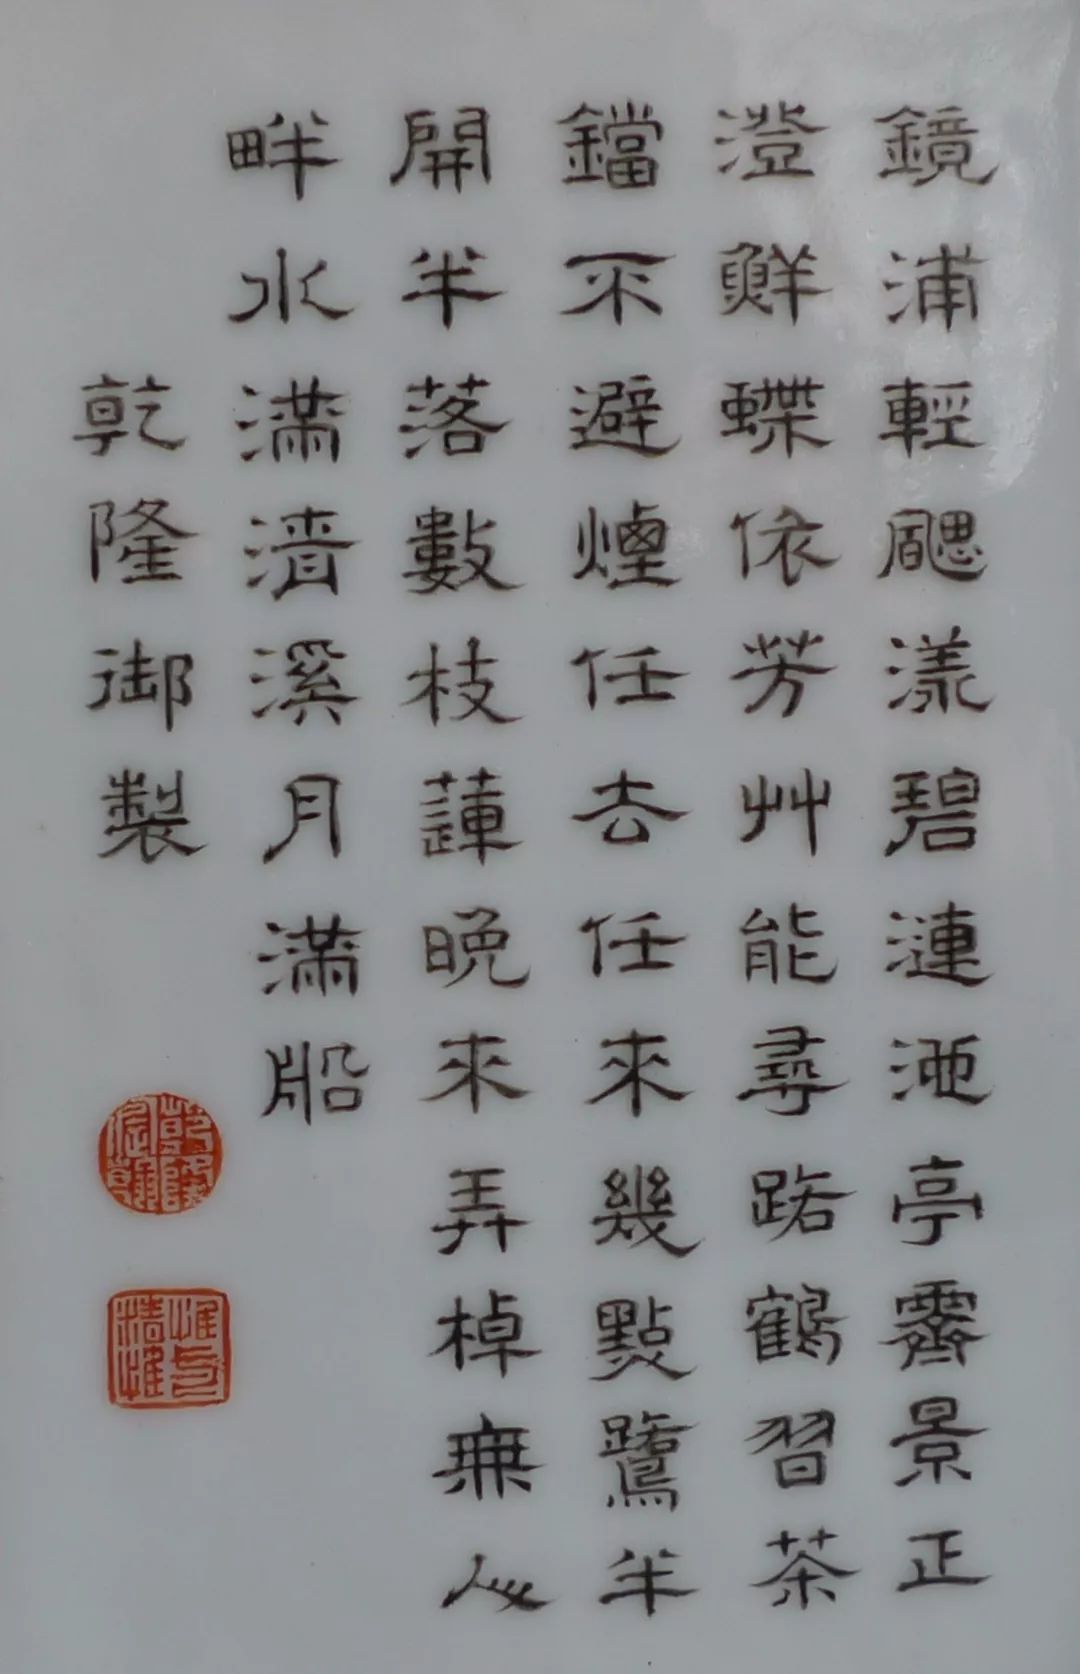 鏡浦輕颸漾碧漣池亭霽景正
澄鮮蝶依芳艸能尋路鶴習茶
鐺不避煙任去任來幾點鷺半
開半落數枝蓮晚來弄棹無人
畔水滿清溪月滿船
乾隆御製
乾隆宸翰
惟精惟一